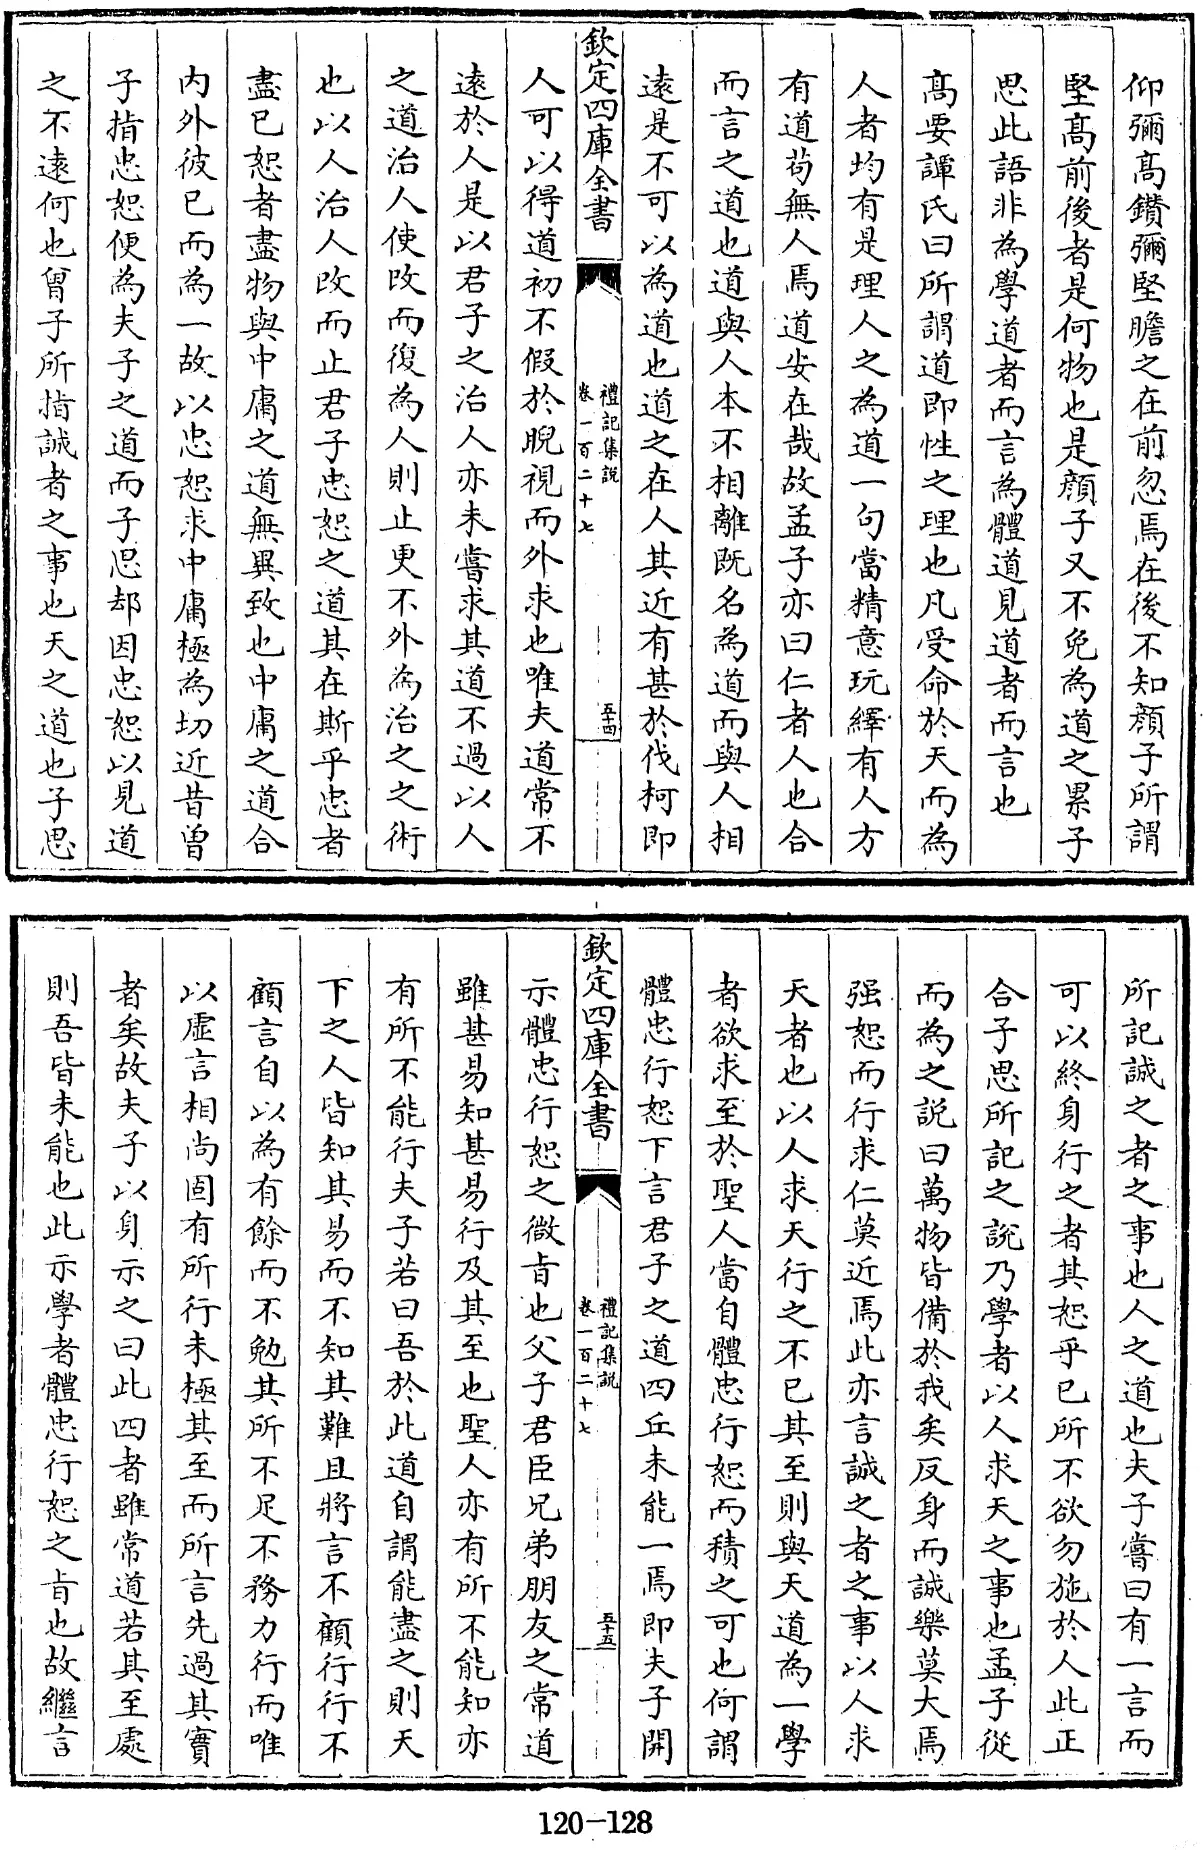 仰彌髙鑽彌堅瞻之在前忽焉在後不知顔子所謂
堅髙前後者是何物也是顔子又不免為道之累子
思此語非為學道者而言為體道見道者而言也
髙要譚氏曰所謂道即性之理也凡受命於天而為
人者均有是理人之為道一句當精意玩繹有人方
有道茍無人焉道安在哉故孟子亦曰仁者人也合
而言之道也道與人本不相離既名為道而與人相
逺是不可以為道也道之在人其近有甚於伐柯即
欽定四庫全書
禮記集説
卷一百二十七
五十四
人可以得道初不假於睨視而外求也唯夫道常不
逺於人是以君子之治人亦未嘗求其道不過以人
之道治人使改而復為人則止更不外為治之之術
也以人治人改而止君子忠恕之道其在斯乎忠者
盡已恕者盡物與中庸之道無異致也中庸之道合
内外彼已而為一故以忠恕求中庸極為切近昔曽
子指忠恕便為夫子之道而子思却因忠恕以見道
之不逺何也曽子所指誠者之事也天之道也子思
所記誠之者之事也人之道也夫子嘗曰有一言而
可以終身行之者其恕乎已所不欲勿施於人此正
合子思所記之説乃學者以人求天之事也孟子從
而為之説曰萬物皆備於我矣反身而誠樂莫大焉
强恕而行求仁莫近焉此亦言誠之者之事以人求
天者也以人求天行之不已其至則與天道為一學
者欲求至於聖人當自體忠行恕而積之可也何謂
體忠行恕下言君子之道四丘未能一焉即夫子開
欽定四庫全書
禮記集説
卷一百二十七
五十五
示體忠行恕之微㫖也父子君臣兄弟朋友之常道
雖甚易知甚易行及其至也聖人亦有所不能知亦
有所不能行夫子若曰吾於此道自謂能盡之則天
下之人皆知其易而不知其難且將言不顧行行不
顧言自以為有餘而不勉其所不足不務力行而唯
以虚言相尚固有所行未極其至而所言先過其實
者矣故夫子以身示之曰此四者雖常道若其至處
則吾皆未能也此示學者體忠行恕之㫖也故繼言
120-128